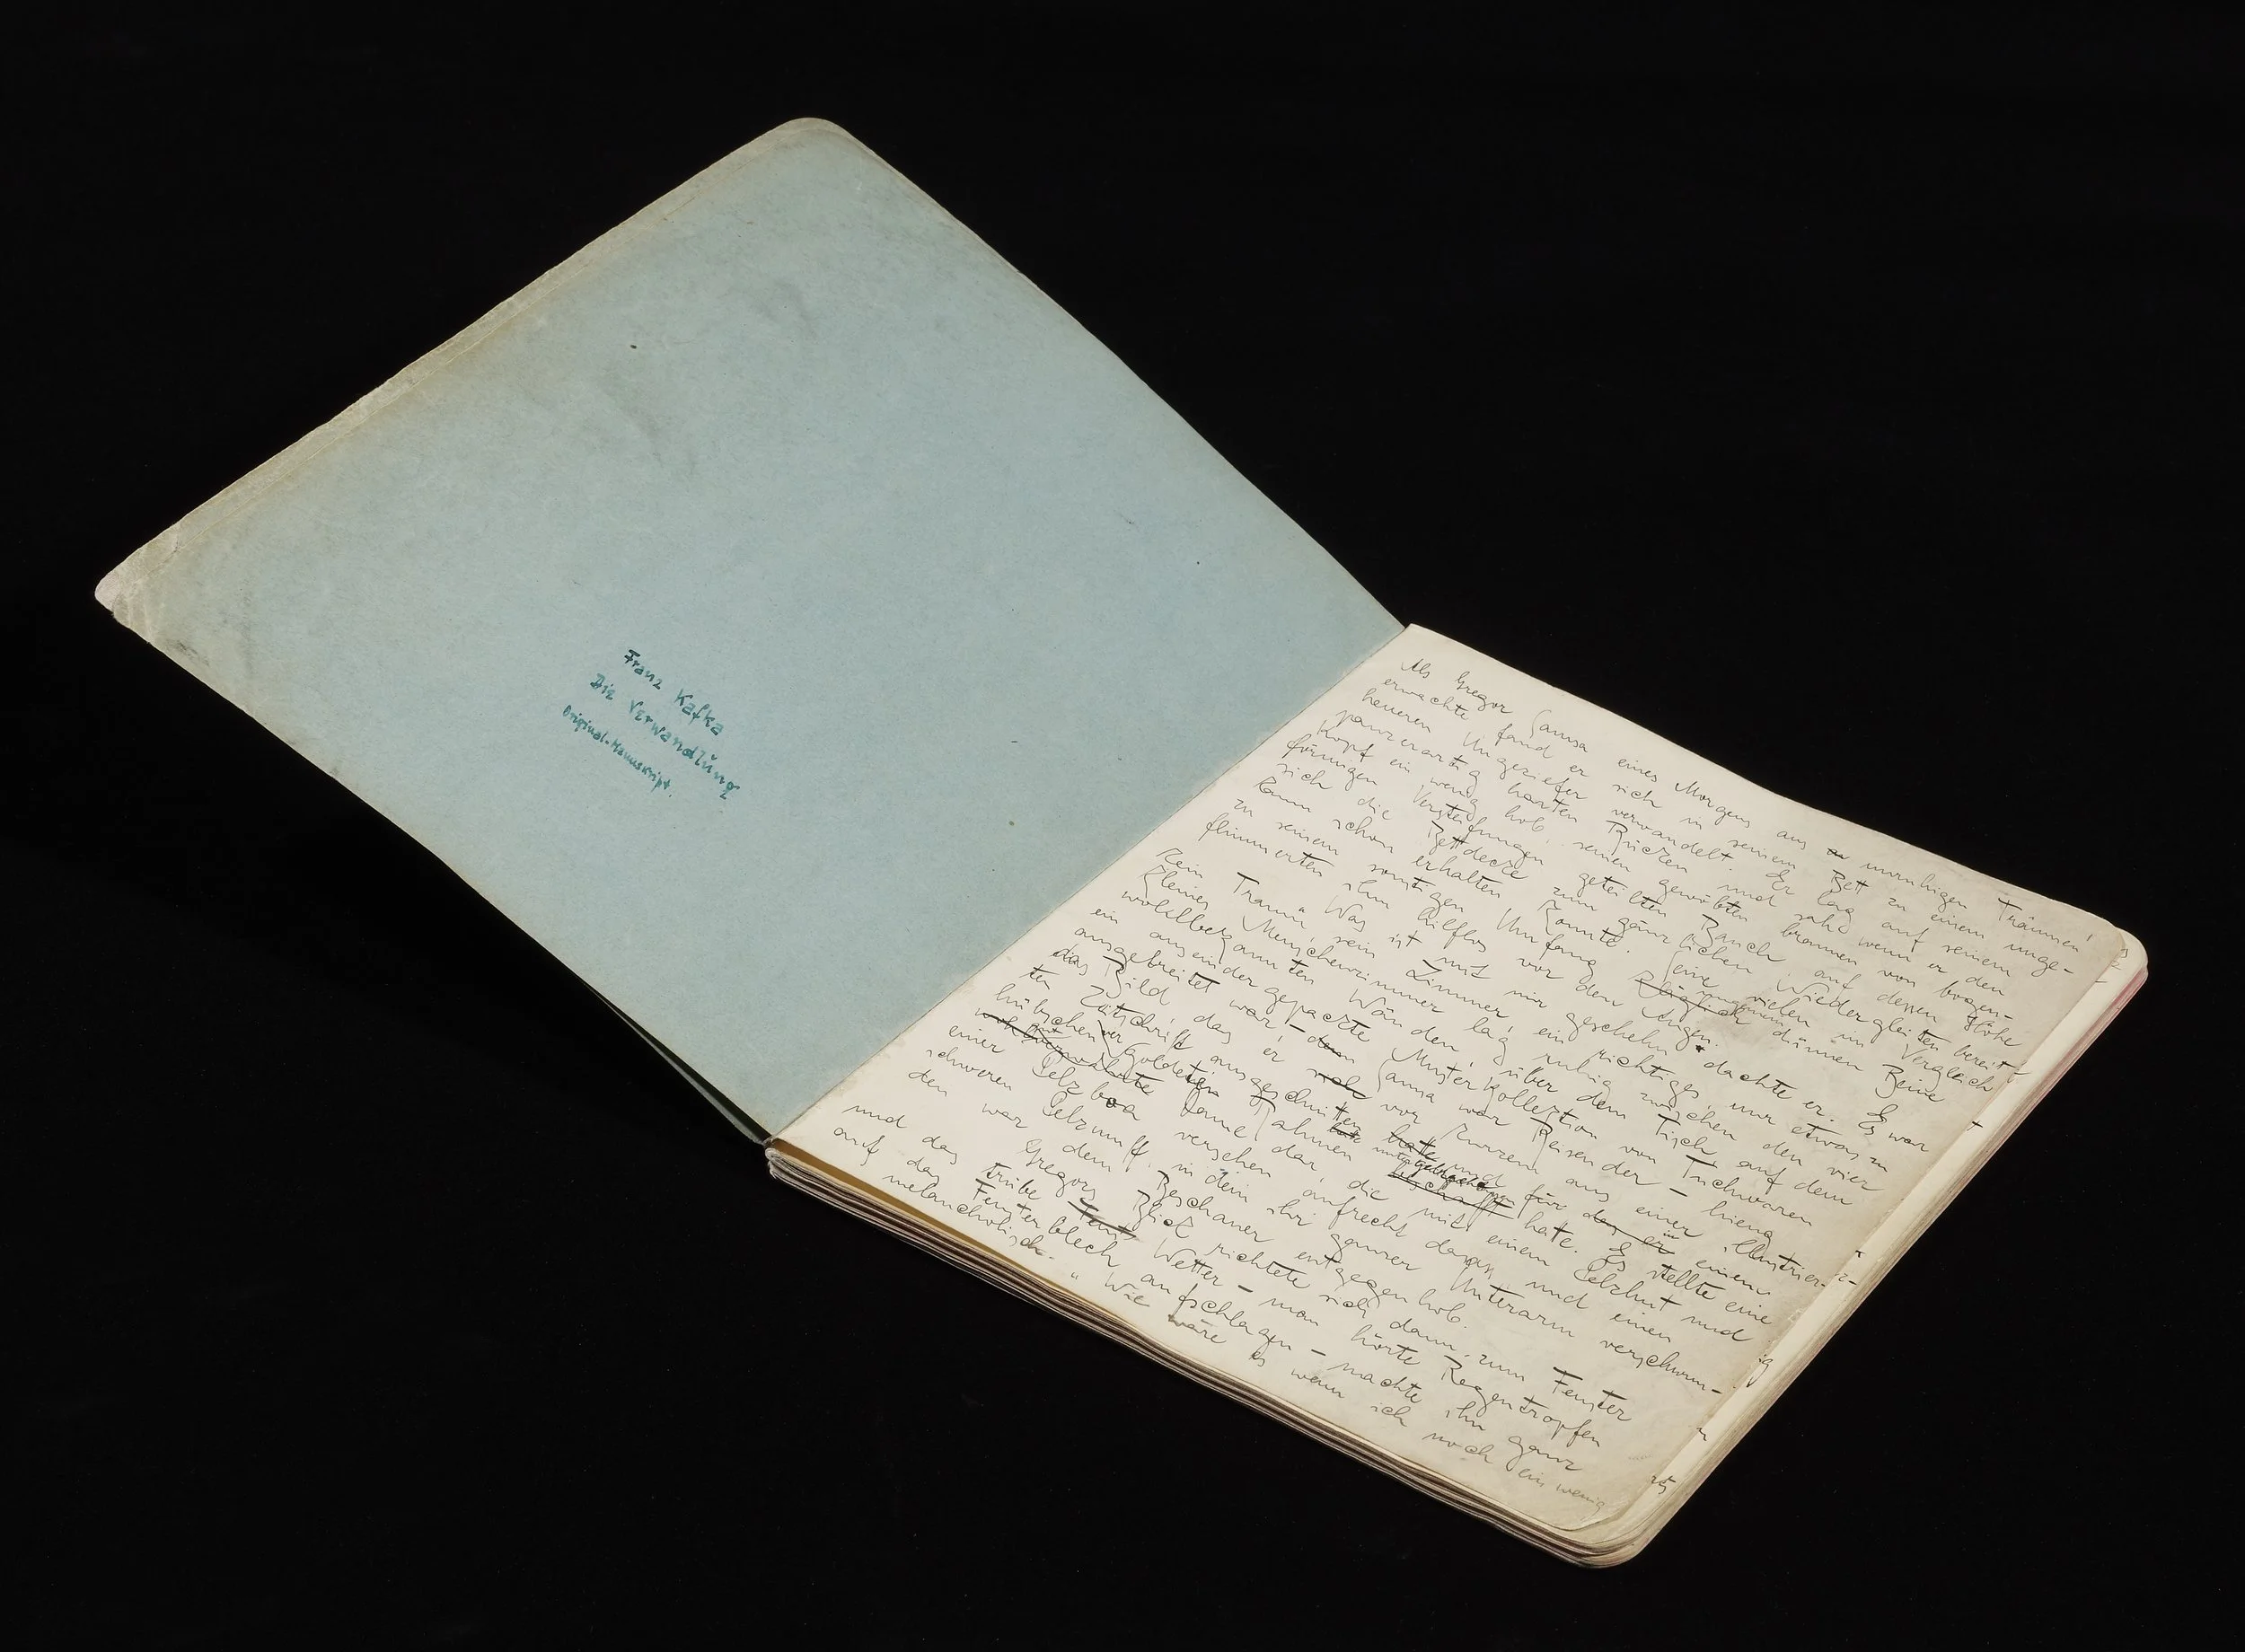 Franz Kafka
Die Verwandlung
Original-Manuskript.
Als Gregor Samsa eines Morgens aus unruhigen Träumen
erwachte fand er sich in seinem Bett zu einem unge-
heueren Ungeziefer verwandelt. Er lag auf seinem
panzerartig harten Rücken und sah, wenn er den
Kopf ein wenig hob, seinen gewölbten braunen von bogen-
förmigen Versteifungen geteilten Bauch auf dessen Höhe
sich die Bettdecke zum gänzlichen Wiedergleiten bereit
kaum noch erhalten konnte. Seine vielen im Vergleich
zu seinem sonstigen Umfang kläglich dünnen Beine
flimmerten ihm hilflos vor den Augen.
„Was ist mit mir geschehn" dachte er. Es war
kein Traum, sein Zimmer, ein richtiges, nur etwas zu
kleines Menschenzimmer lag ruhig zwischen den vier
wohlbekannten Wänden, über dem Tisch, auf dem
eine auseinandergepackte Musterkollektion von Tuchwaren
ausgebreitet war – Samsa war Reisender – hieng
das Bild, das er vor kurzem aus einer illustrier-
ten Zeitschrift ausgeschnitten und in einem
hübschen vergoldeten Rahmen untergebracht hatte. Es stellte eine
Dame dar, die mit einem Pelzhut und
einer Pelzboa versehen aufrecht dasaß und einen
schweren Pelzmuff, in dem ihr ganzer Unterarm verschwun-
den war dem Beschauer entgegenhob.
Gregors Blick richtete sich dann zum Fenster
und das trübe Wetter – man hörte Regentropfen
auf das Fensterblech aufschlagen – machte ihn ganz
melancholisch. „Wie wäre es wenn ich noch ein wenig